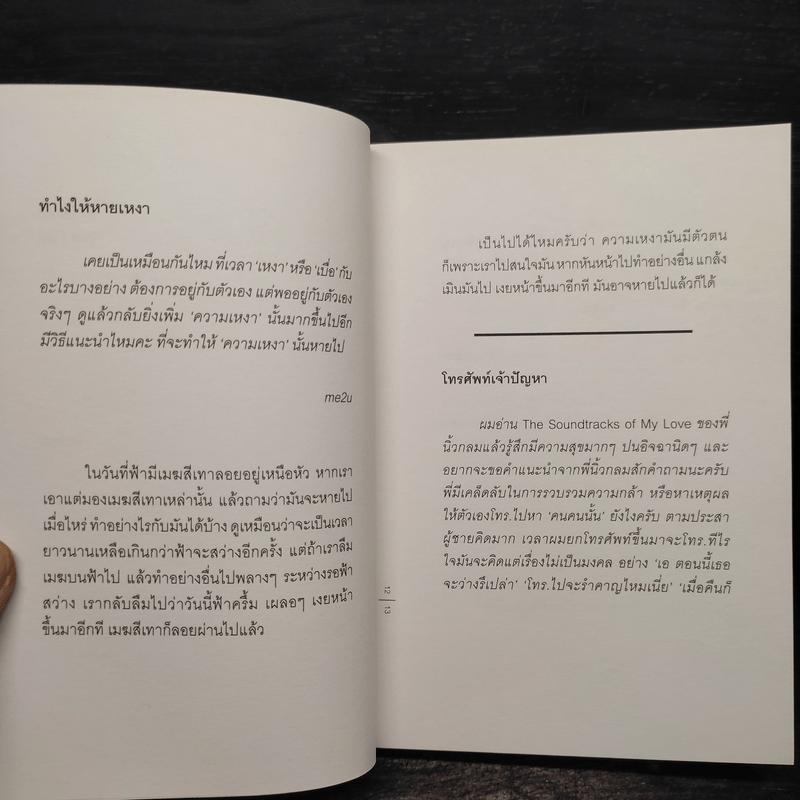 ทำไงให้หายเหงา
เคยเป็นเหมือนกันไหม ที่เวลา ‘เหงา’ หรือ ‘เบื่อ’ กับ
อะไรบางอย่าง ต้องการอยู่กับตัวเอง แต่พออยู่กับตัวเอง
จริงๆ ดูแล้วกลับยิ่งเพิ่ม ‘ความเหงา’ นั้นมากขึ้นไปอีก
มีวิธีแนะนำไหมคะ ที่จะทำให้ ‘ความเหงา’ นั้นหายไป
me2u
ในวันที่ฟ้ามีเมฆสีเทาลอยอยู่เหนือหัว หากเรา
เอาแต่มองเมฆสีเทาเหล่านั้น แล้วถามว่ามันจะหายไป
เมื่อไหร่ ทำอย่างไรกับมันได้บ้าง ดูเหมือนว่าจะเป็นเวลา
ยาวนานเหลือเกินกว่าฟ้าจะสว่างอีกครั้ง แต่ถ้าเราลืม
เมฆบนฟ้าไป แล้วทำอย่างอื่นไปพลางๆ ระหว่างรอฟ้า
สว่าง เรากลับลืมไปว่าวันนี้ฟ้าครึ้ม เผลอๆ เงยหน้า
ขึ้นมาอีกที เมฆสีเทาก็ลอยผ่านไปแล้ว
12
13
เป็นไปได้ไหมครับว่า ความเหงามันมีตัวตน
ก็เพราะเราไปสนใจมัน หากหันหน้าไปทำอย่างอื่น แกล้ง
เมินมันไป เงยหน้าขึ้นมาอีกที มันอาจหายไปแล้วก็ได้
โทรศัพท์เจ้าปัญหา
ผมอ่าน The Soundtracks of My Love ของพี่
นิ้วกลมแล้วรู้สึกมีความสุขมากๆ ปนอิจฉานิดๆ และ
อยากจะขอคำแนะนำจากพี่นิ้วกลมสักคำถามนะครับ
พี่มีเคล็ดลับในการรวบรวมความกล้า หรือหาเหตุผล
ให้ตัวเองโทร.ไปหา ‘คนคนนั้น’ ยังไงครับ ตามประสา
ผู้ชายคิดมาก เวลาผมยกโทรศัพท์ขึ้นมาจะโทร.ทีไร
ใจมันจะคิดแต่เรื่องไม่เป็นมงคล อย่าง ‘เอ ตอนนี้เธอ
จะว่างรึเปล่า’ ‘โทร.ไปจะรำคาญไหมเนี่ย’ ‘เมื่อคืนก็